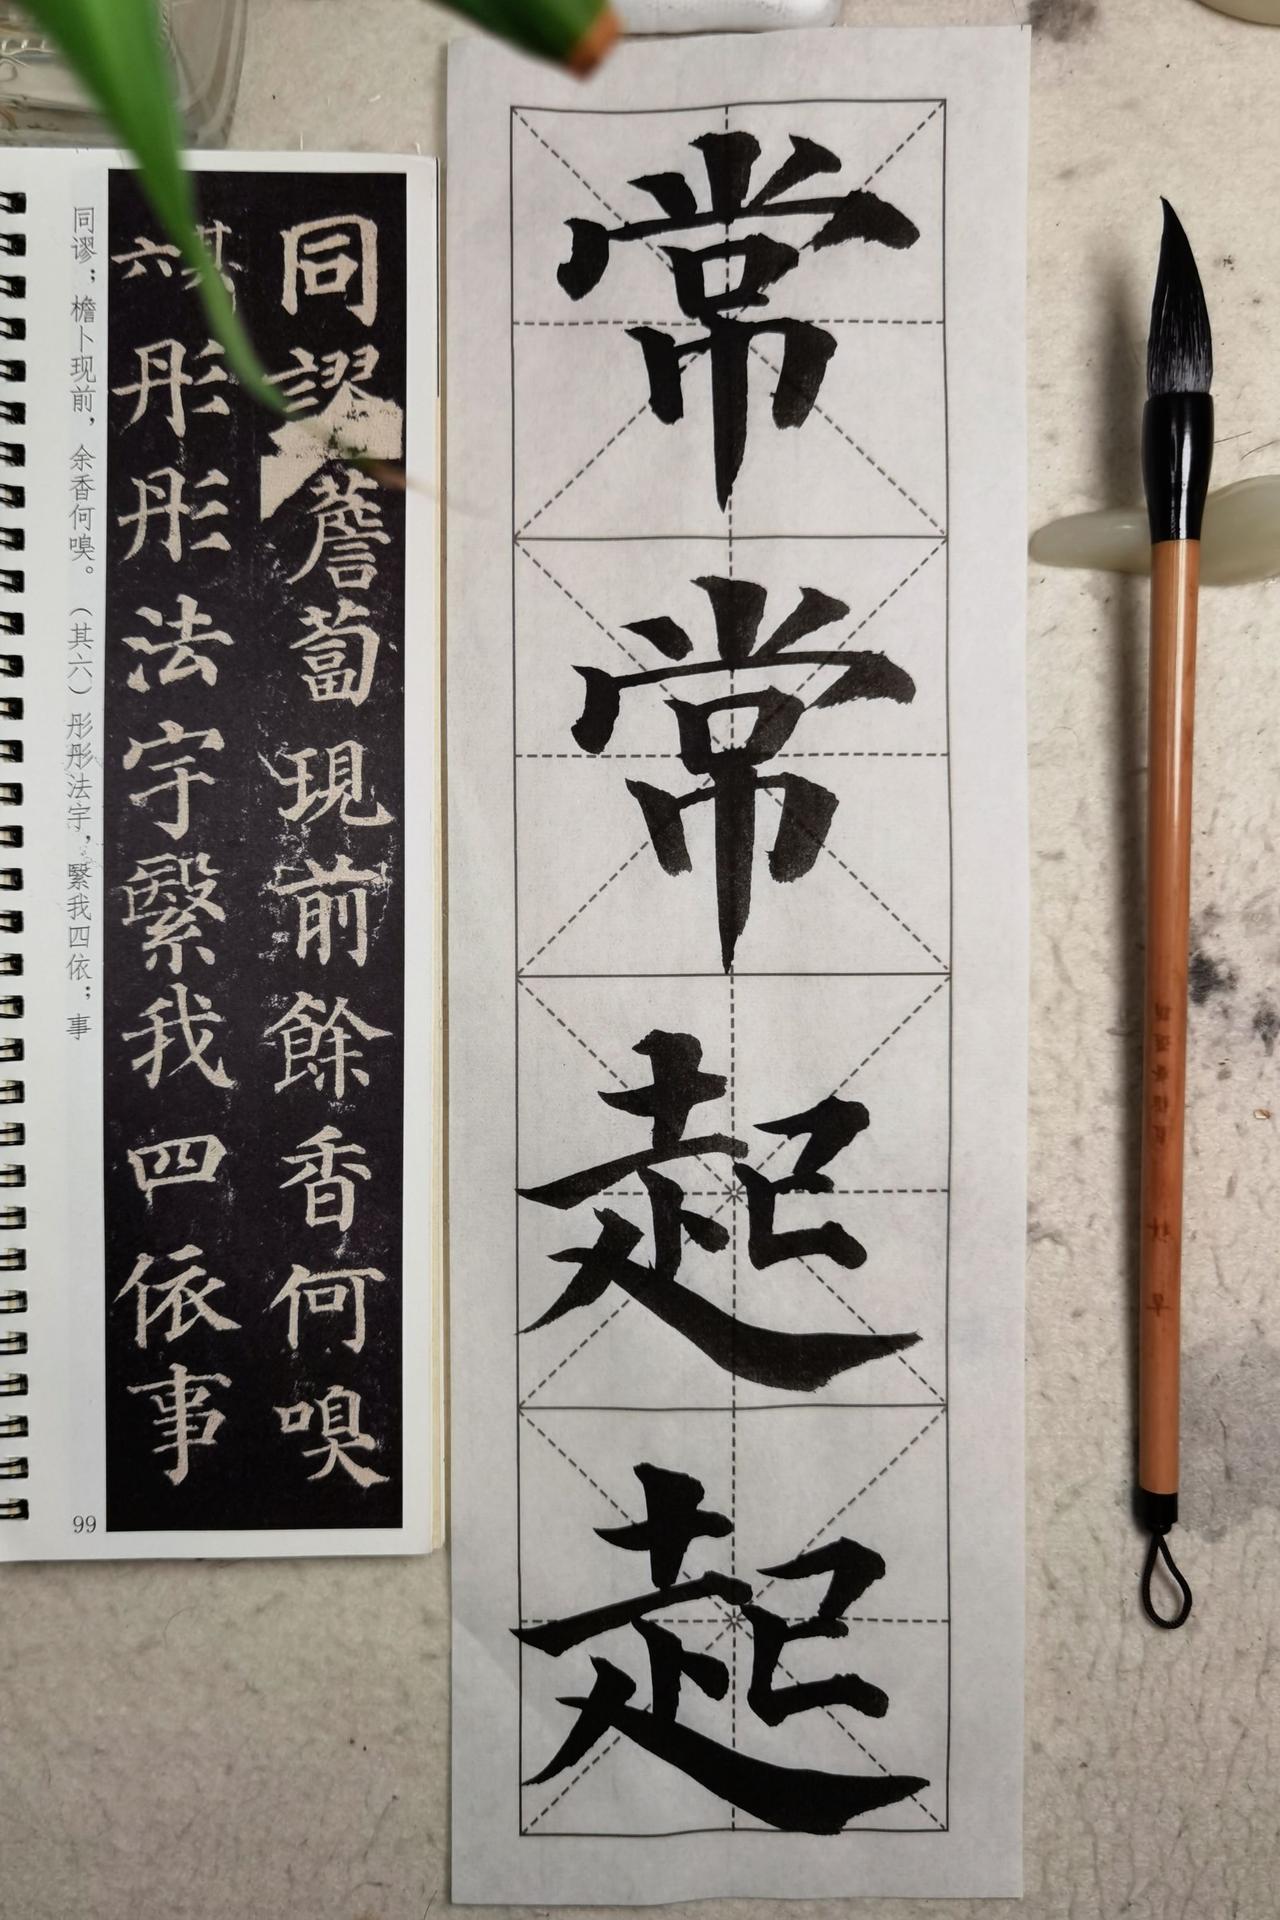 常常起起
同謬薝蔔現前餘香何嗅
其六彤彤法宇繄我四依事
同谬；檐卜现前，余香何嗅。（其六）彤彤法宇，繄我四依；事
99